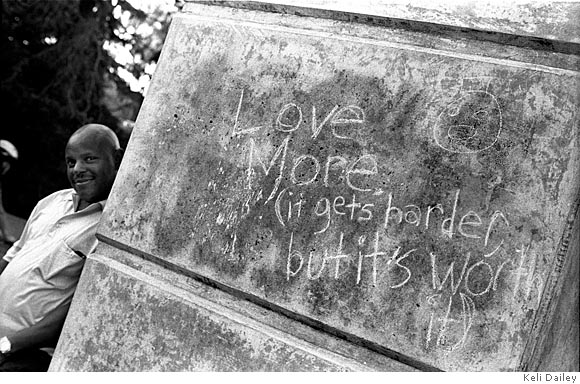 Love
More
(it gets harder,
but it's worth
it)
Keli Dailey